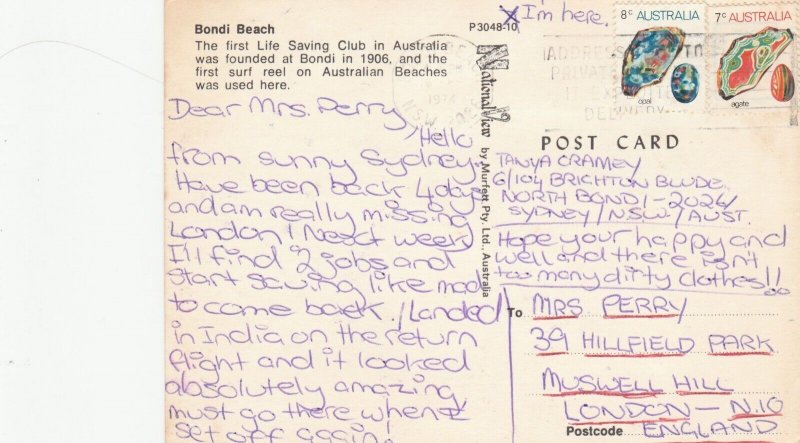 Bondi Beach
The first Life Saving Club in Australia
was founded at Bondi in 1906, and the
first surf reel on Australian Beaches
was used here.
P3048-10
X I'm here.
8c AUSTRALIA
opal
7c AUSTRALIA
agate
ADDRESS
PRIVATE
DELIVERY
1974
N.S.W.
National View
by Murfett Pty. Ltd., Australia
Dear Mrs. Perry,
Hello
from sunny Sydney.
Have been back 4 days
and am really missing
London! Next week
I'll find 2 jobs and
start saving like mad
to come back. I landed
in India on the return
flight and it looked
absolutely amazing
must go there when I
set off again!
POST CARD
TANYA CRAMEY
6/104 BRIGHTON BLVDE.
NORTH BONDI - 2026/
SYDNEY/N.S.W./AUST.
Hope your happy and
well and there isn't
too many dirty clothes!!
To MRS PERRY
39 HILLFIELD PARK
MUSWELL HILL
LONDON - N.10
Postcode ENGLAND